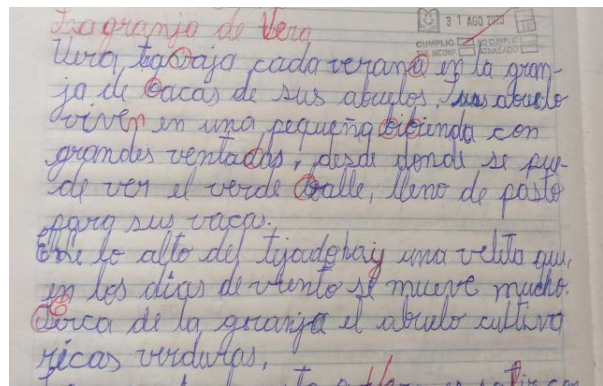 La granja de Vera
31 AGO
CUMPLIO
NO CUMPLIO
ATRASADO
Vera tabaja cada verana en la gran-
ja de bacas de sus abuelos, sus abuelo
viven en una pequeña bibienda con
grandes ventadas, desde donde se pue-
de ver el verde balle, lleno de pasto
para sus vacas.
En lo alto del tijado hay una velita que,
en los dias de viento se mueve mucho.
Serca de la granja el abuelo cultiva
ricas verduras,